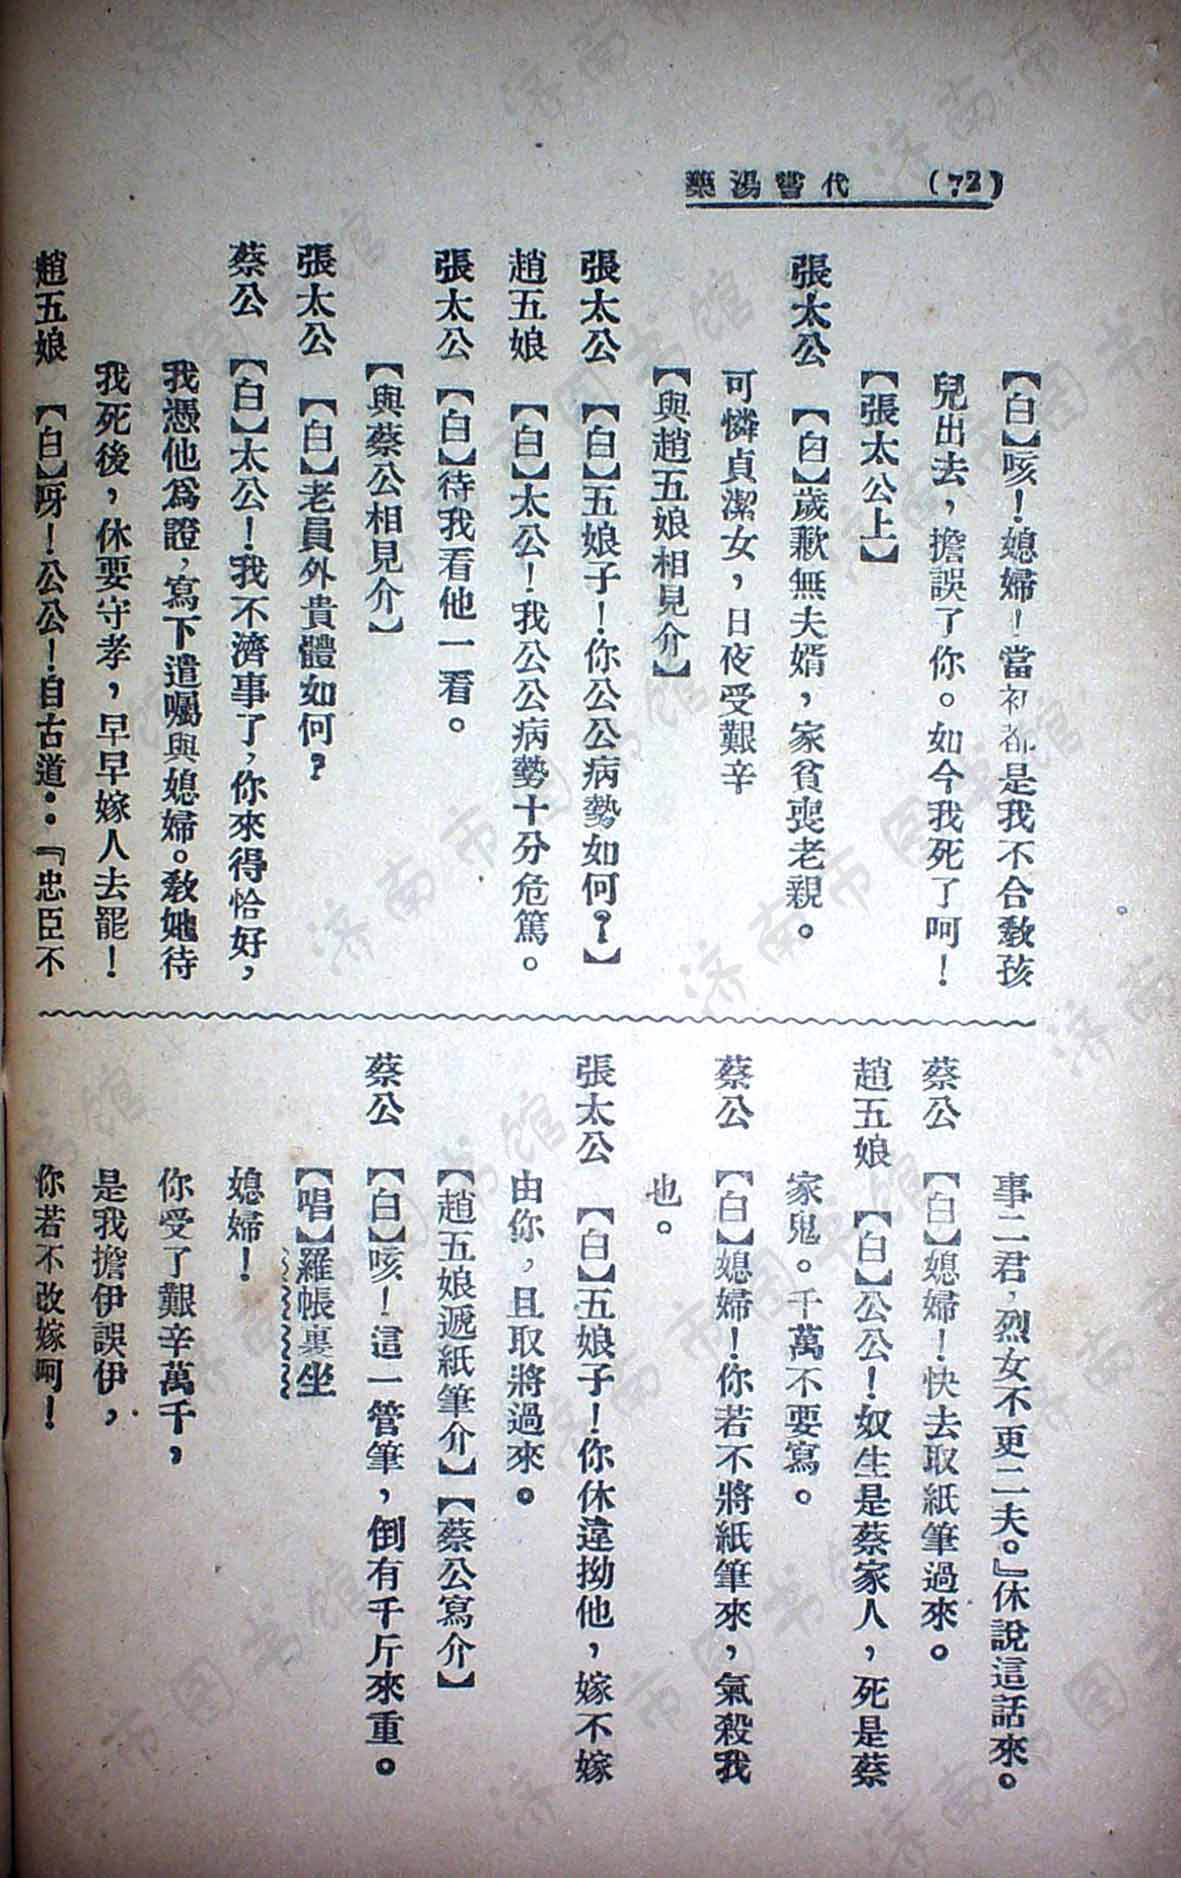 (72) 代嘗湯藥
【白】咳！媳婦！當初都是我不合敎孩
兒出去，擔誤了你。如今我死了呵！
【張太公上】
張太公 【白】歲歉無夫婿，家貧喪老親。
可憐貞潔女，日夜受艱辛
【與趙五娘相見介】
張太公 【白】五娘子！你公公病勢如何？】
趙五娘 【白】太公！我公公病勢十分危篤。
張太公 【白】待我看他一看。
【與蔡公相見介】
張太公 【白】老員外貴體如何？
蔡公 【白】太公！我不濟事了，你來得恰好，
我憑他爲證，寫下遺囑與媳婦。敎她待
我死後，休要守孝，早早嫁人去罷！
趙五娘 【白】呀！公公！自古道：『忠臣不
事二君，烈女不更二夫。』休說這話來。
蔡公 【白】媳婦！快去取紙筆過來。
趙五娘 【白】公公！奴生是蔡家人，死是蔡
家鬼。千萬不要寫。
蔡公 【白】媳婦！你若不將紙筆來，氣殺我
也。
張太公 【白】五娘子！你休違拗他，嫁不嫁
由你，且取將過來。
【趙五娘遞紙筆介】【蔡公寫介】
蔡公 【白】咳！這一管筆，倒有千斤來重。
【唱】羅帳裏坐
媳婦！
你受了艱辛萬千，
是我擔伊誤伊，
你若不改嫁呵！
济南市图书馆